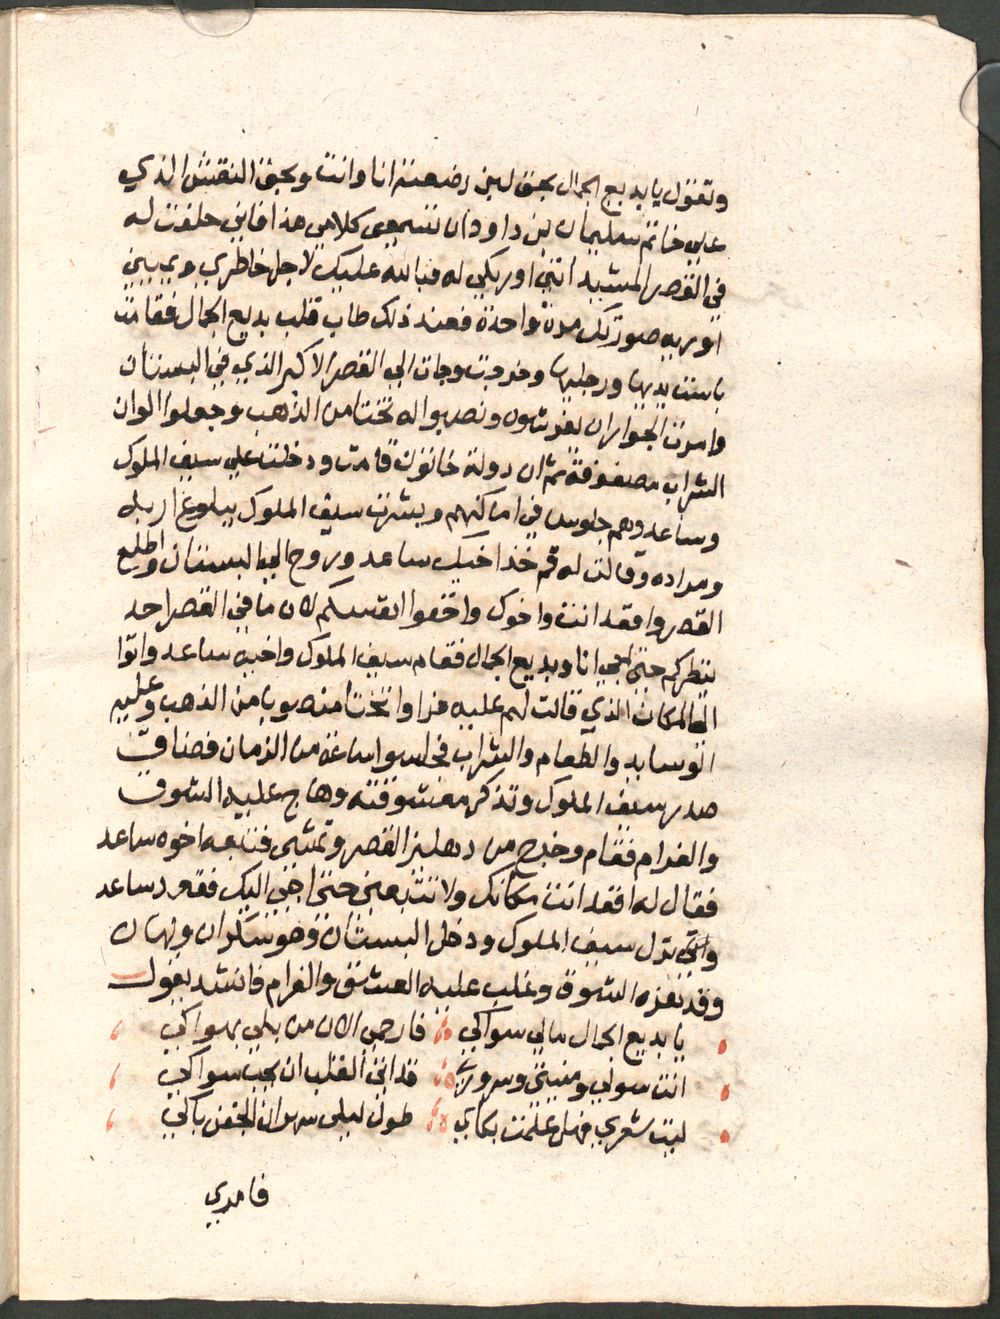 وتقول يا بديع الجمال بحق لبن رضعته انا وانت وبحق النقش الذي
علي خاتم سليمان بن داود ان تسمعي كلامي هذا فاني حلفت له
في القصر المشيد انني اوريكي له فبالله عليك لاجل خاطري ويميني
اوريه صورتك مرة واحدة فعند ذلك طاب قلب بديع الجمال فقامت
باست يديها ورجليها وخرجت وجات الي القصر الاكبر الذي في البستان
وامرت الجوار ان يفرشوه ونصبوا له تختا من الذهب وجعلوا الوان
الشراب مصفوفة ثم ان دولة خاتون قامت ودخلت علي سيف الملوك
وساعد وهم جلوس في اماكنهم وبشرت سيف الملوك ببلوغ اربه
ومراده وقالت له قم خذ اخيك ساعد وروح الي البستان واطلع
القصر واقعد انت واخوك واخفوا انفسكم لان ما في القصر احد
ينظركم حتي اجي انا وبديع الجمال فقام سيف الملوك واخيه ساعد واتوا
الي المكان الذي قالت لهم عليه فراوا تختا منصوبا من الذهب وعليه
الوسايد والطعام والشراب فجلسوا ساعة من الزمان فضاق
صدر سيف الملوك وتذكر معشوقته وهاج عليه الشوق
والغرام فقام وخرج من دهليز القصر وتمشي فتابعه اخوه ساعد
فقال له اقعد انت مكانك ولا تتبعني حتي اجي اليك فقعد ساعد
ونزل سيف الملوك ودخل البستان وهو سكران ولهان
وقد هزه الشوق وغلب عليه العشق والغرام فانشد يقول
يا بديع الجمال مالي سواكي فارحمي الان من بلي بهواكي
انت سولي ومنيتي وسروري قد ابي القلب ان يحب سواكي
ليت شعري فهل علمت بكاي طول ليلي سهران الجفن باكي
فامري